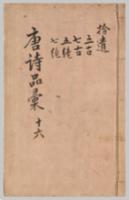 拾遺
五古
七古
五絕
七絕
唐詩品彙 十六